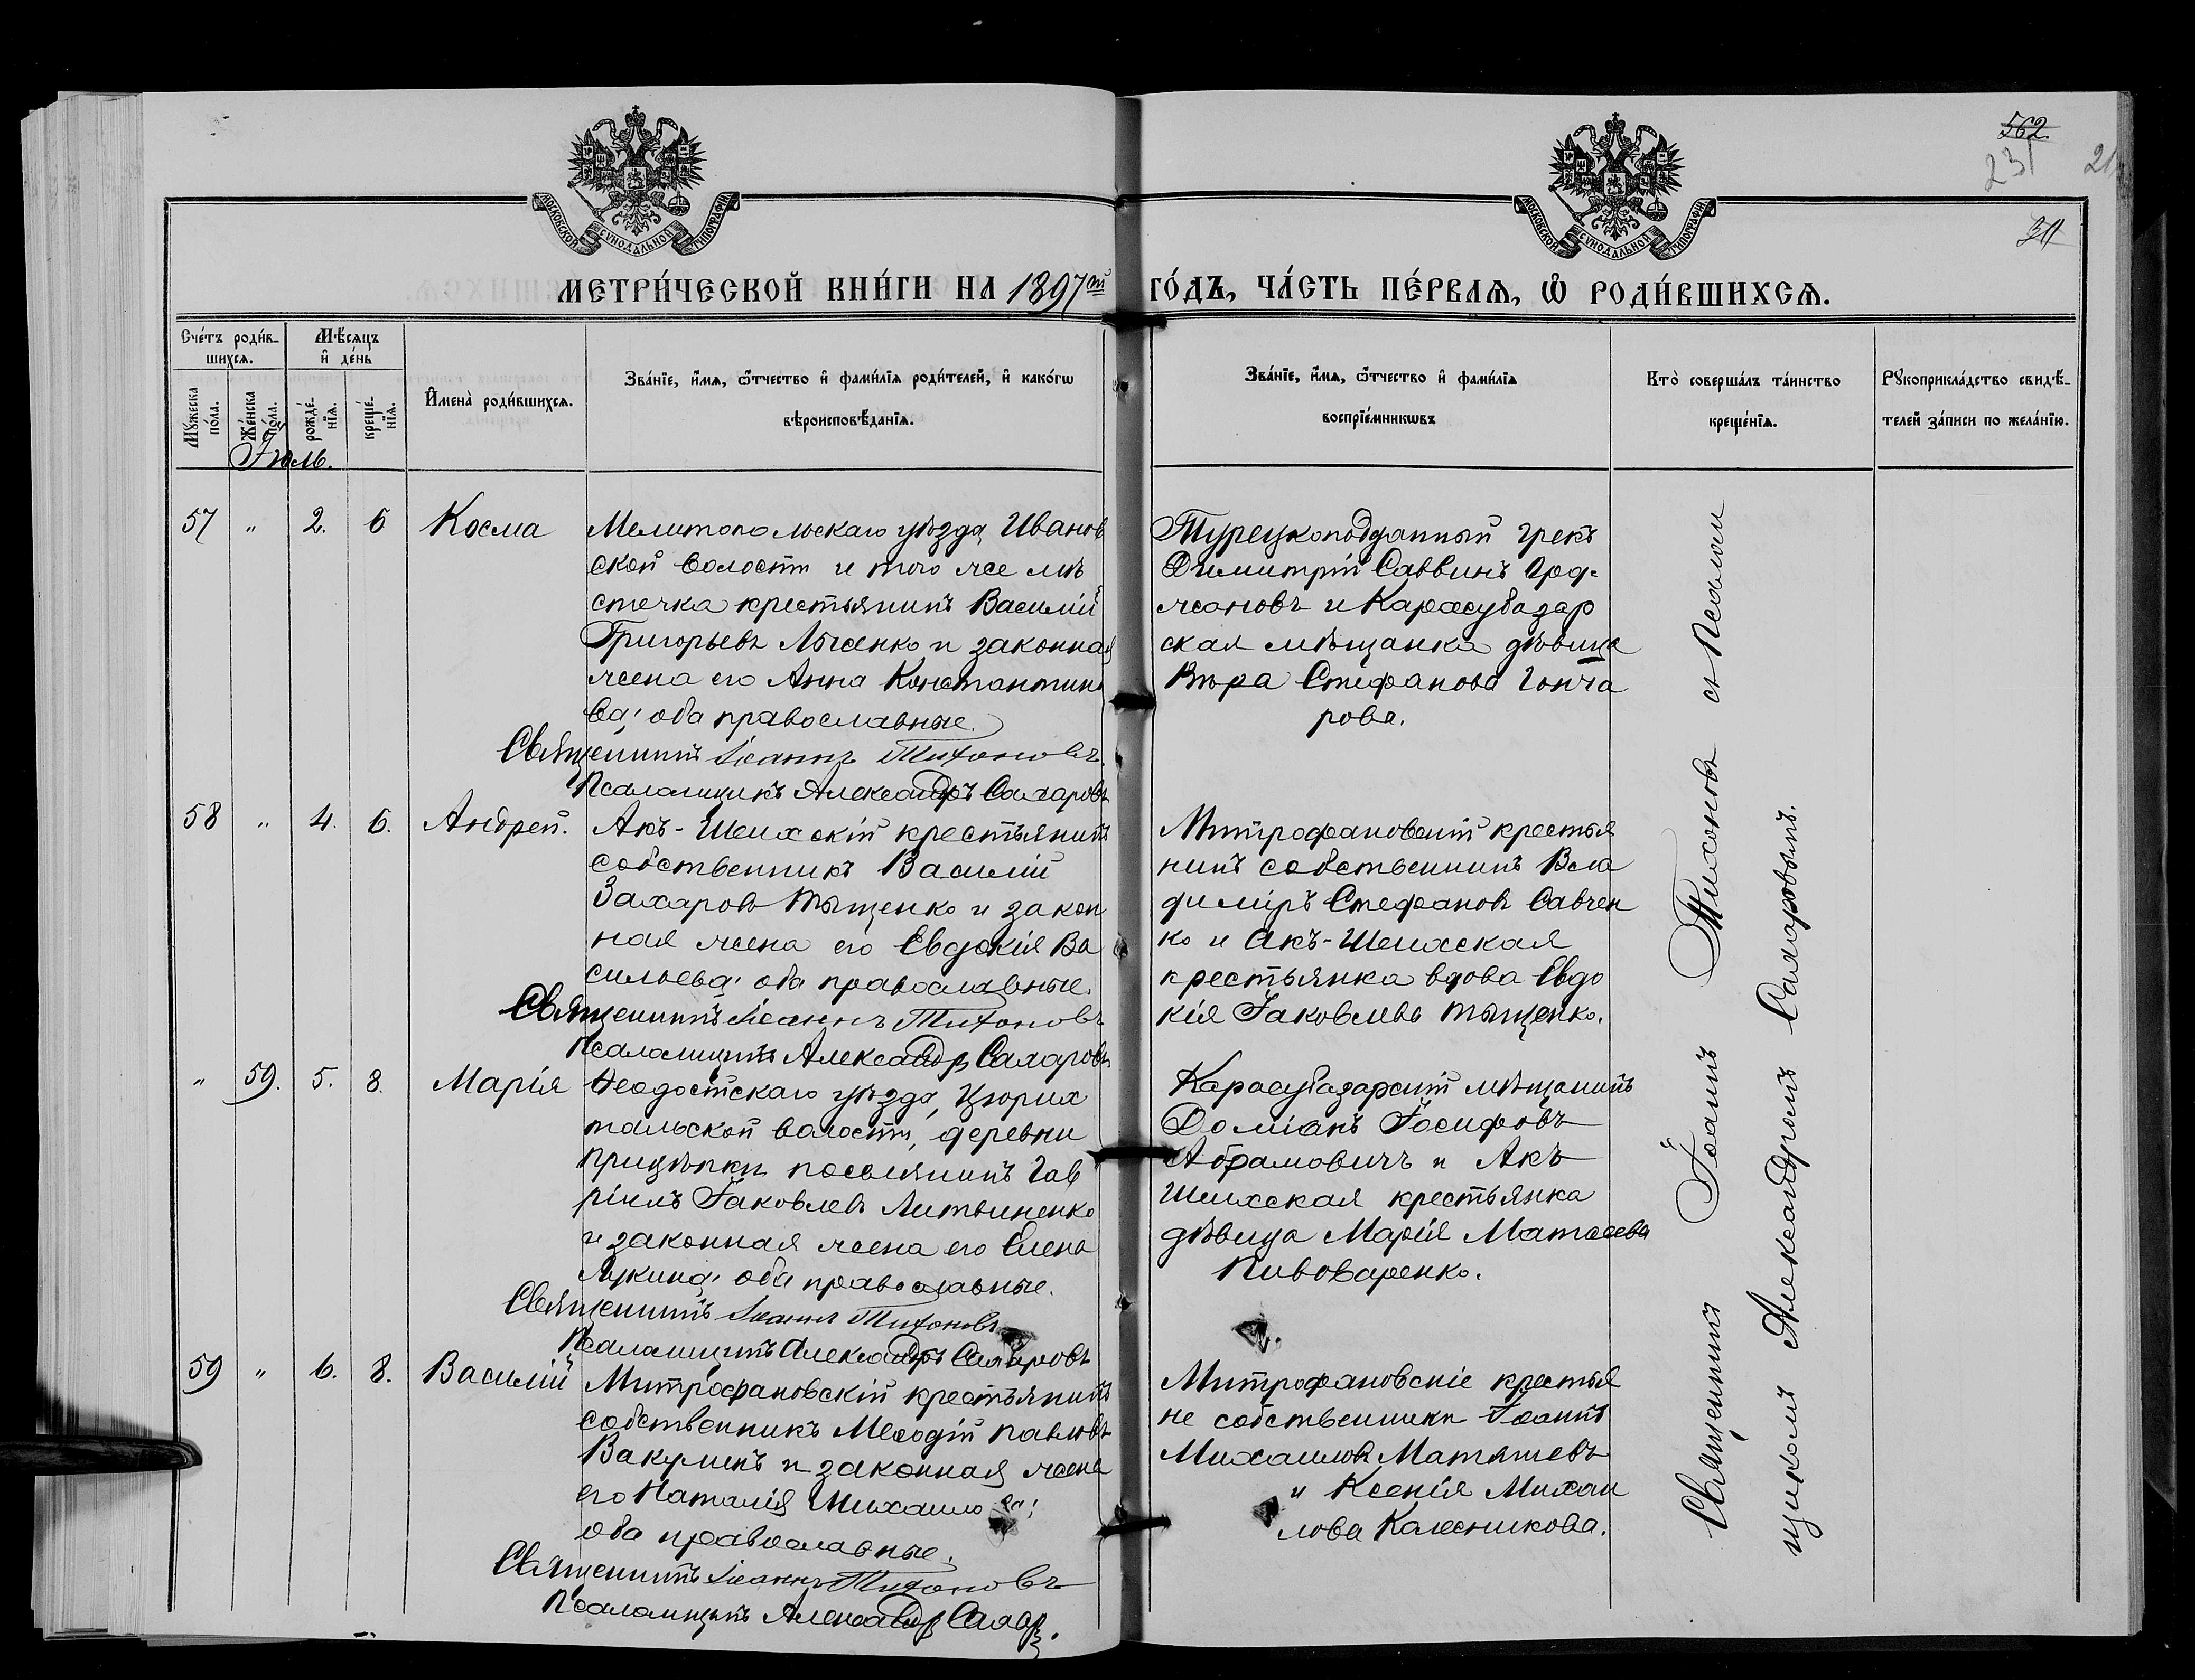 562.
231
21
31
МОСКОВСКОЙ СѴНОДАЛЬНОЙ ТИПОГРАФІИ
МОСКОВСКОЙ СѴНОДАЛЬНОЙ ТИПОГРАФІИ
МЕТРИ́ЧЕСКОЙ КНИ́ГИ НА 1897ой ГО́ДЪ, ЧА́СТЬ ПЕ́РВАѦ, Ѡ РОДИ́ВШИХСѦ.
Сче́тъ роди́в-
шихсѧ.
Мꙋ́жеска по́ла.
Же́нска по́ла.
Мѣ́сѧцъ
и҆ де́нь
рожде́-
нїѧ.
креще́-
нїѧ.
И҆мена̀ роди́вшихсѧ.
Зва́нїе, и҆́мѧ, ѻ҆́тчество и҆ фами́лїѧ роди́телей, и҆ како́гѡ
вѣроисповѣ́данїѧ.
Зва́нїе, и҆́мѧ, ѻ҆́тчество и҆ фами́лїѧ
воспрїе́мникѡвъ
Кто̀ соверша́лъ та́инство
креще́нїѧ.
Рꙋкоприкла́дство свидѣ́-
телей за́писи по жела́нїю.
Іюль.
57 " 2. 6 Косма
Мелитопольскаго уѣзда, Иванов
ской волости и того же мѣ
стечка крестьянинъ Василій
Григорьевъ Лысенко и законная
жена его Анна Константино
ва; оба православные.
Священникъ Іоаннъ Тихоновъ.
Псаломщикъ Александръ Сахаровъ
Турецкоподданный грекъ
Димитрій Саввинъ
и Карасубазар
ская мѣщанка дѣвица
Вѣра Стефанова Гонча
рова.
58 " 4. 6. Андрей.
Акъ-Шеихскій крестьянинъ
собственникъ Василій
Захаровъ Тыщенко и закон
ная жена его Евдокія Ва
сильева; оба православные.
Священникъ Іоаннъ Тихоновъ
Псаломщикъ Александръ Сахаровъ
Митрофановскій крестья
нинъ собственникъ Вла
диміръ Стефановъ Савчен
ко и Акъ-Шеихская
крестьянка вдова Евдо
кія Іаковлева Тыщенко.
" 59. 5. 8. Марія
Ѳеодосійскаго уѣзда, Цюрих
тальской волости, деревни
поселянинъ Гав
ріилъ Іаковлевъ Литвиненко
и законная жена его Елена
Лукина; оба православные.
Священникъ Іоаннъ Тихоновъ
Псаломщикъ Александръ Сахаровъ
Карасубазарскій мѣщанинъ
Доміанъ Іосифовъ
Абрамовичъ и Акъ
Шеихская крестьянка
дѣвица Марія Матѳеева
Пивоваренко.
59 " 6. 8. Василій
Митрофановскій крестьянинъ
собственникъ Меѳодій Павловъ
Вакуленъ и законная жена
его Наталія Михаило ва;
оба православные.
Священникъ Іоаннъ Тихоновъ
Псаломщикъ Александръ Сахар.
Митрофановскіе крестья
не собственники Іоаннъ
Михаиловъ Матяшевъ
и Ксенія Михаи
лова Колесникова.
Священникъ Іоаннъ Тихоновъ съ Псалом
щикомъ Александромъ Сахаровымъ.